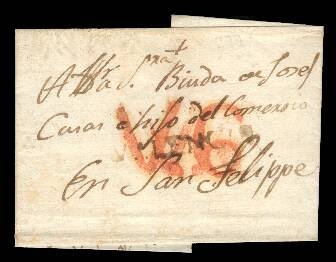 A la Sra Biuda de Josef
Casas e hijo del Comercio
En San Felippe